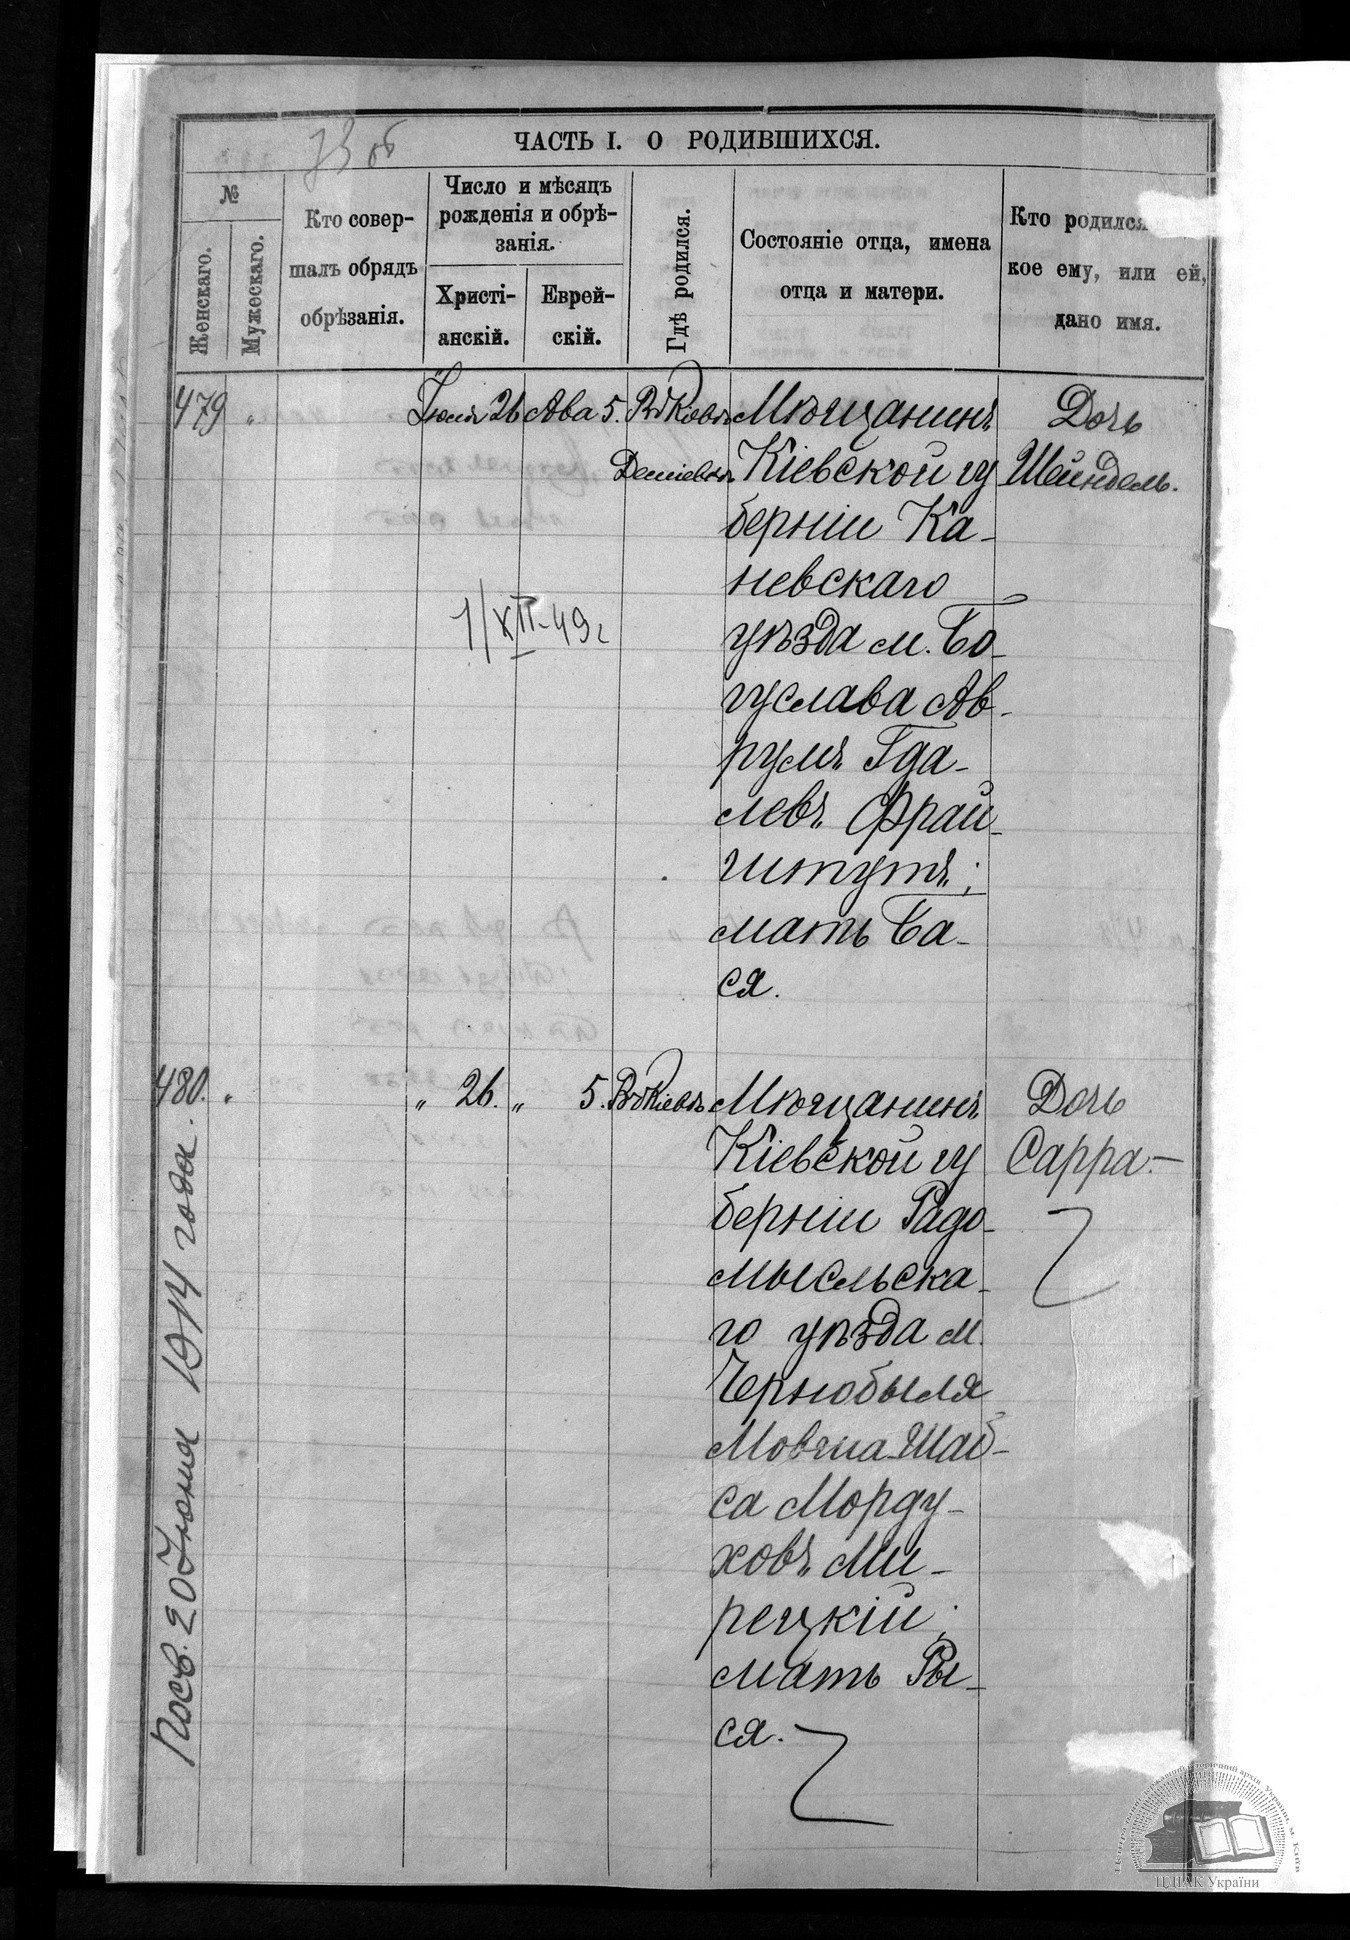 73 об
ЧАСТЬ I. О РОДИВШИХСЯ.
№
Женскаго.
Мужескаго.
Кто совер-
шалъ обрядъ
обрѣзанія.
Число и мѣсяцъ
рожденія и обрѣ-
занія.
Христі-
анскій.
Еврей-
скій.
Гдѣ родился.
Состояніе отца, имена
отца и матери.
Кто родился
кое ему, или ей,
дано имя.
479 „ Іюля 26 Ава 5.
Деміевкѣ
Мѣщанинъ
Кіевской гу
берніи Ка-
невскаго
уѣзда м. Бо-
гуслава Ав-
румъ Гда-
левъ Фрай-
штутъ;
мать Ба-
ся.
Дочь
Шейндель.
1/XII-49 г
480. „ „ 26. „ 5. Въ Кіевѣ
Мѣщанинъ
Кіевской гу
берніи Радо-
мысльска-
го уѣзда м.
Чернобыля
Мовша-Шаб-
са Морду-
ховъ Ми-
рецкій;
мать Ры-
ся.
Дочь
Сарра.—
Посв. 20 Іюня 1914 года.
Центральний державний історичний архів України, м. Київ
ЦДІАК України